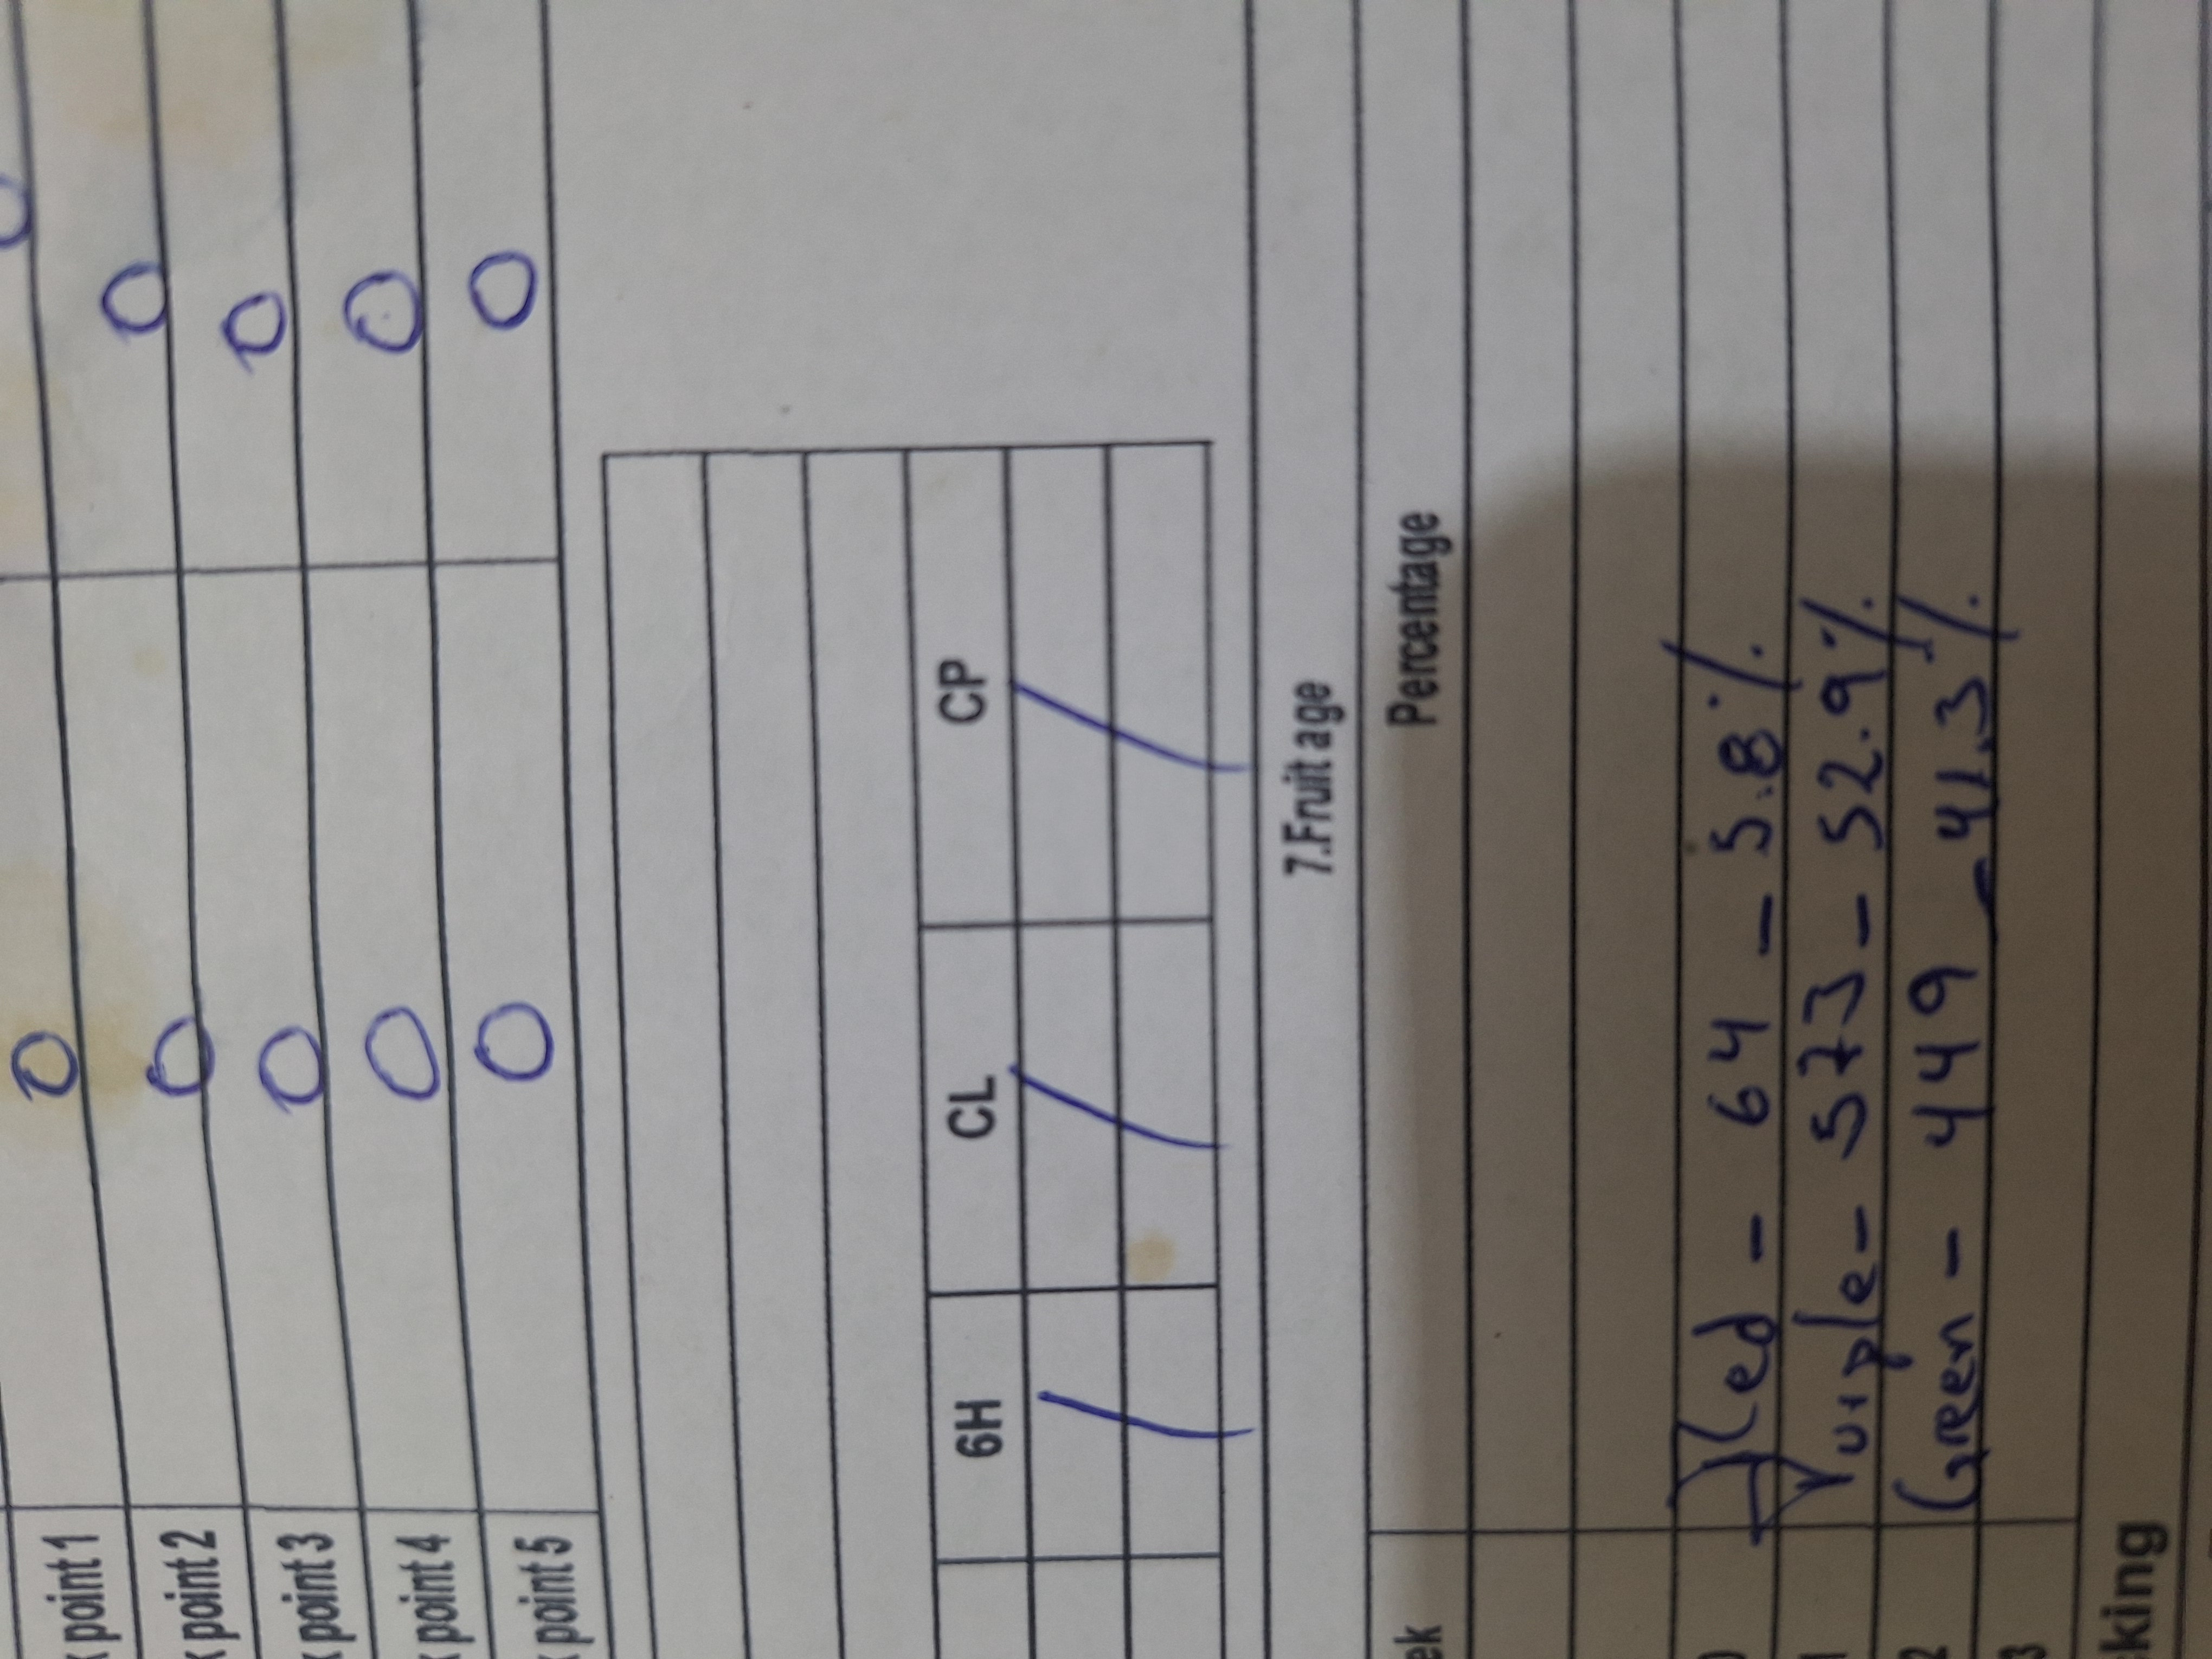 point 1 0
point 2 0 0
point 3 0 0
point 4 0 0
point 5 0 0
6H CL CP
/ / /
7.Fruit age
Percentage
Red - 64 - 5.8%
Purple - 573 - 52.9%
Green - 449 - 41.3%